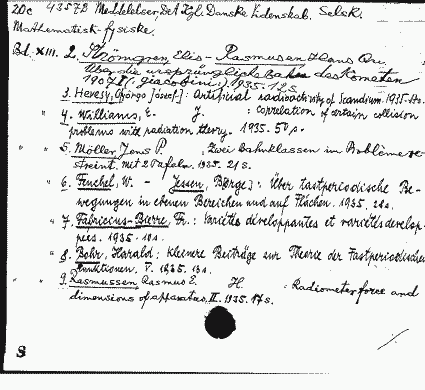 20c 43572 Meddelelser Det Kgl. Danske Videnskab. Selsk.
Mathematisk-fysiske.
Bd. XIII. 2. Strömgren, Elis - Rasmusen Hans Qu.
Über die ursprüngliche Bahn des Kometen
1907 I (Giacobini). 1935. 12 s.
3. Hevesy, György József: Artificial radioactivity of Scandium. 1935. 17 s.
" 4. Williams, E. J. : Correlation of certain collision
problems with radiation theory. 1935. 50 p.
" " 5. Möller Jens P. : Zwei Bahnklassen im Problème re-
streint, mit 2 Tafeln. 1935. 21 s.
" 6. Fenchel, W. - Jessen, Børge: Über fastperiodische Be-
wegungen in ebenen Bereichen und auf Flächen. 1935. 28 s.
" 7. Fabricius-Bierre, Fr.: Variétés développantes et variétés dévelop-
pées. 1935. 10 s.
" 8. Bohr, Harald: Kleinere Beiträge zur Theorie der Fastperiodischen
Funktionen. V. 1935. 15 s.
" " 9. Rasmussen, Rasmus E. H. : Radiometer force and
dimensions of apparatus. II. 1935. 17 s.
S